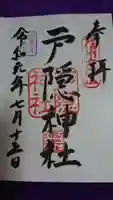 奉拝
戸隠神社
令和元年七月十五日